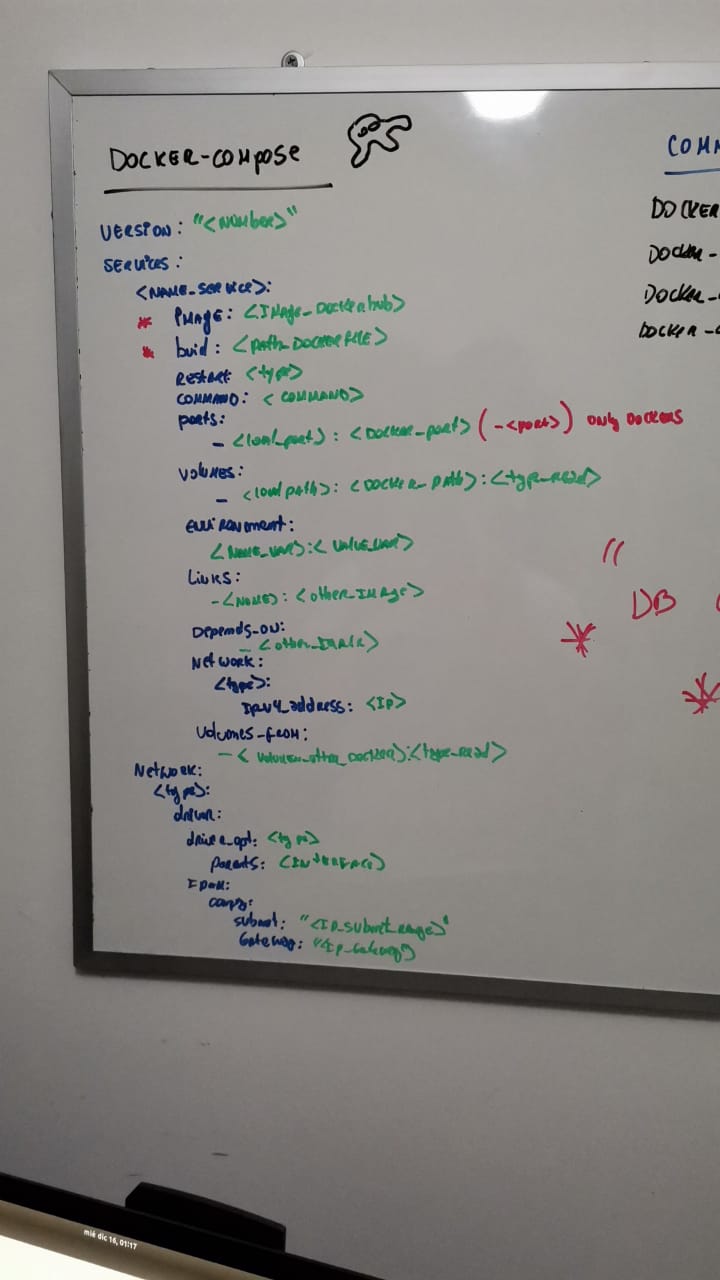 DOCKER-COMPOSE
VERSION: "<NUMBER>"
SERVICES:
<NAME_SERVICE>:
* IMAGE: <IMAGE_DOCKERhub>
* buid: <PATH_DOCKERFILE>
RESTART <type>
COMMAND: <COMMAND>
ports:
- <local_port>: <DOCKER_port> (-<port>) ONLY DOCKERS
VOLUMES:
- <local path>: <DOCKER_PATH>:<type_READ>
Environment:
<NAME_VAR>:<VALUE_VAR>
Links:
-<NAME>: <other_IMAGE>
Depends_on:
- <other_
Network:
<type>:
IPV4_address: <IP>
Volumes_from:
-< other_DOCKER>:<type_Read>
Network:
<type>:
driver:
driver_opt: <type>
parents: <INTERFACE>
IPAM:
config:
subnet: "<IP_subnet_range>"
Gateway: "<IP_Gateway>
COMM
DOCKER
DOCKER-
DOCKER-
DOCKER-
"
DB
*
*
mié dic 16, 01:17